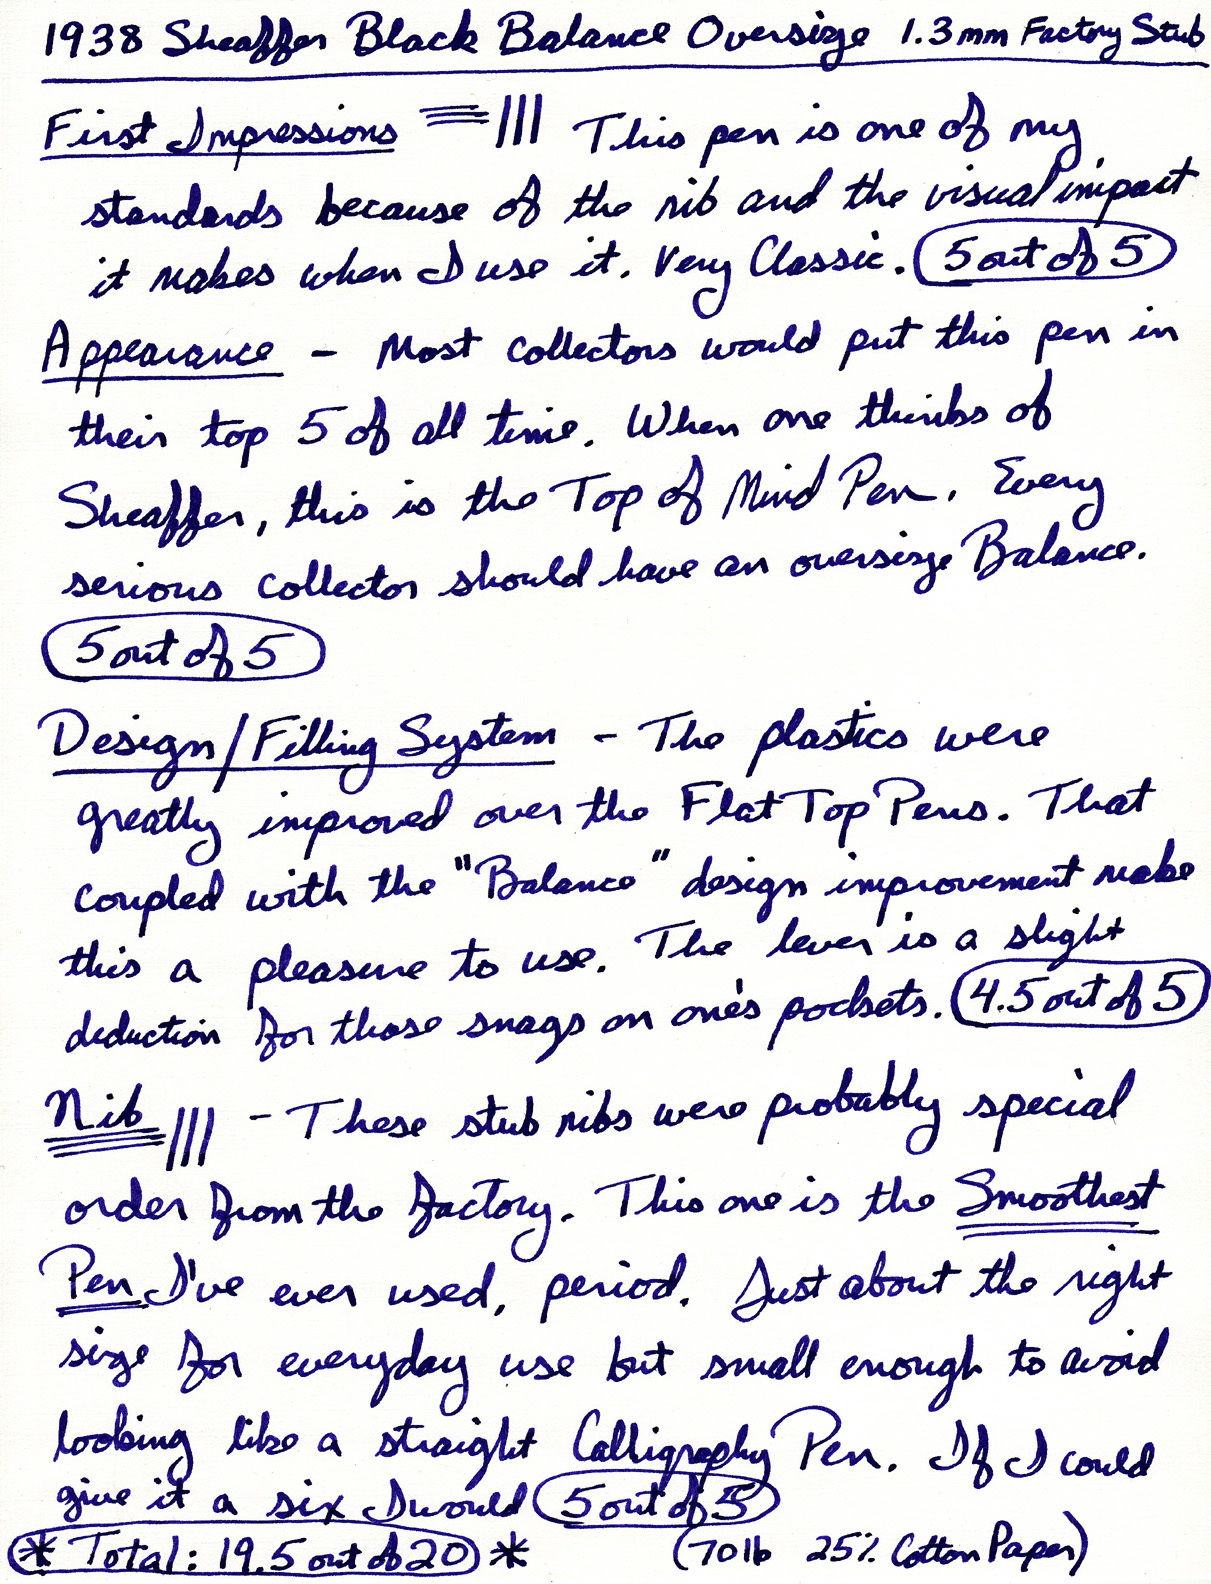 1938 Sheaffer Black Balance Oversize 1.3mm Factory Stub
First Impressions This pen is one of my
standards because of the nib and the visual impact
it makes when I use it. Very Classic. 5 out of 5
Appearance - Most collectors would put this pen in
their top 5 of all time. When one thinks of
Sheaffer, this is the Top of Mind Pen. Every
serious collector should have an oversize Balance.
5 out of 5
Design/Filling System - The plastics were
greatly improved over the Flat Top Pens. That
coupled with the "Balance" design improvement make
this a pleasure to use. The lever is a slight
deduction for those snags on one's pockets. 4.5 out of 5
Nib - These stub nibs were probably special
order from the factory. This one is the Smoothest
Pen I've ever used, period. Just about the right
size for everyday use but small enough to avoid
looking like a straight Calligraphy Pen. If I could
give it a six I would 5 out of 5
* Total: 19.5 out of 20 * (70lb 25% Cotton Paper)